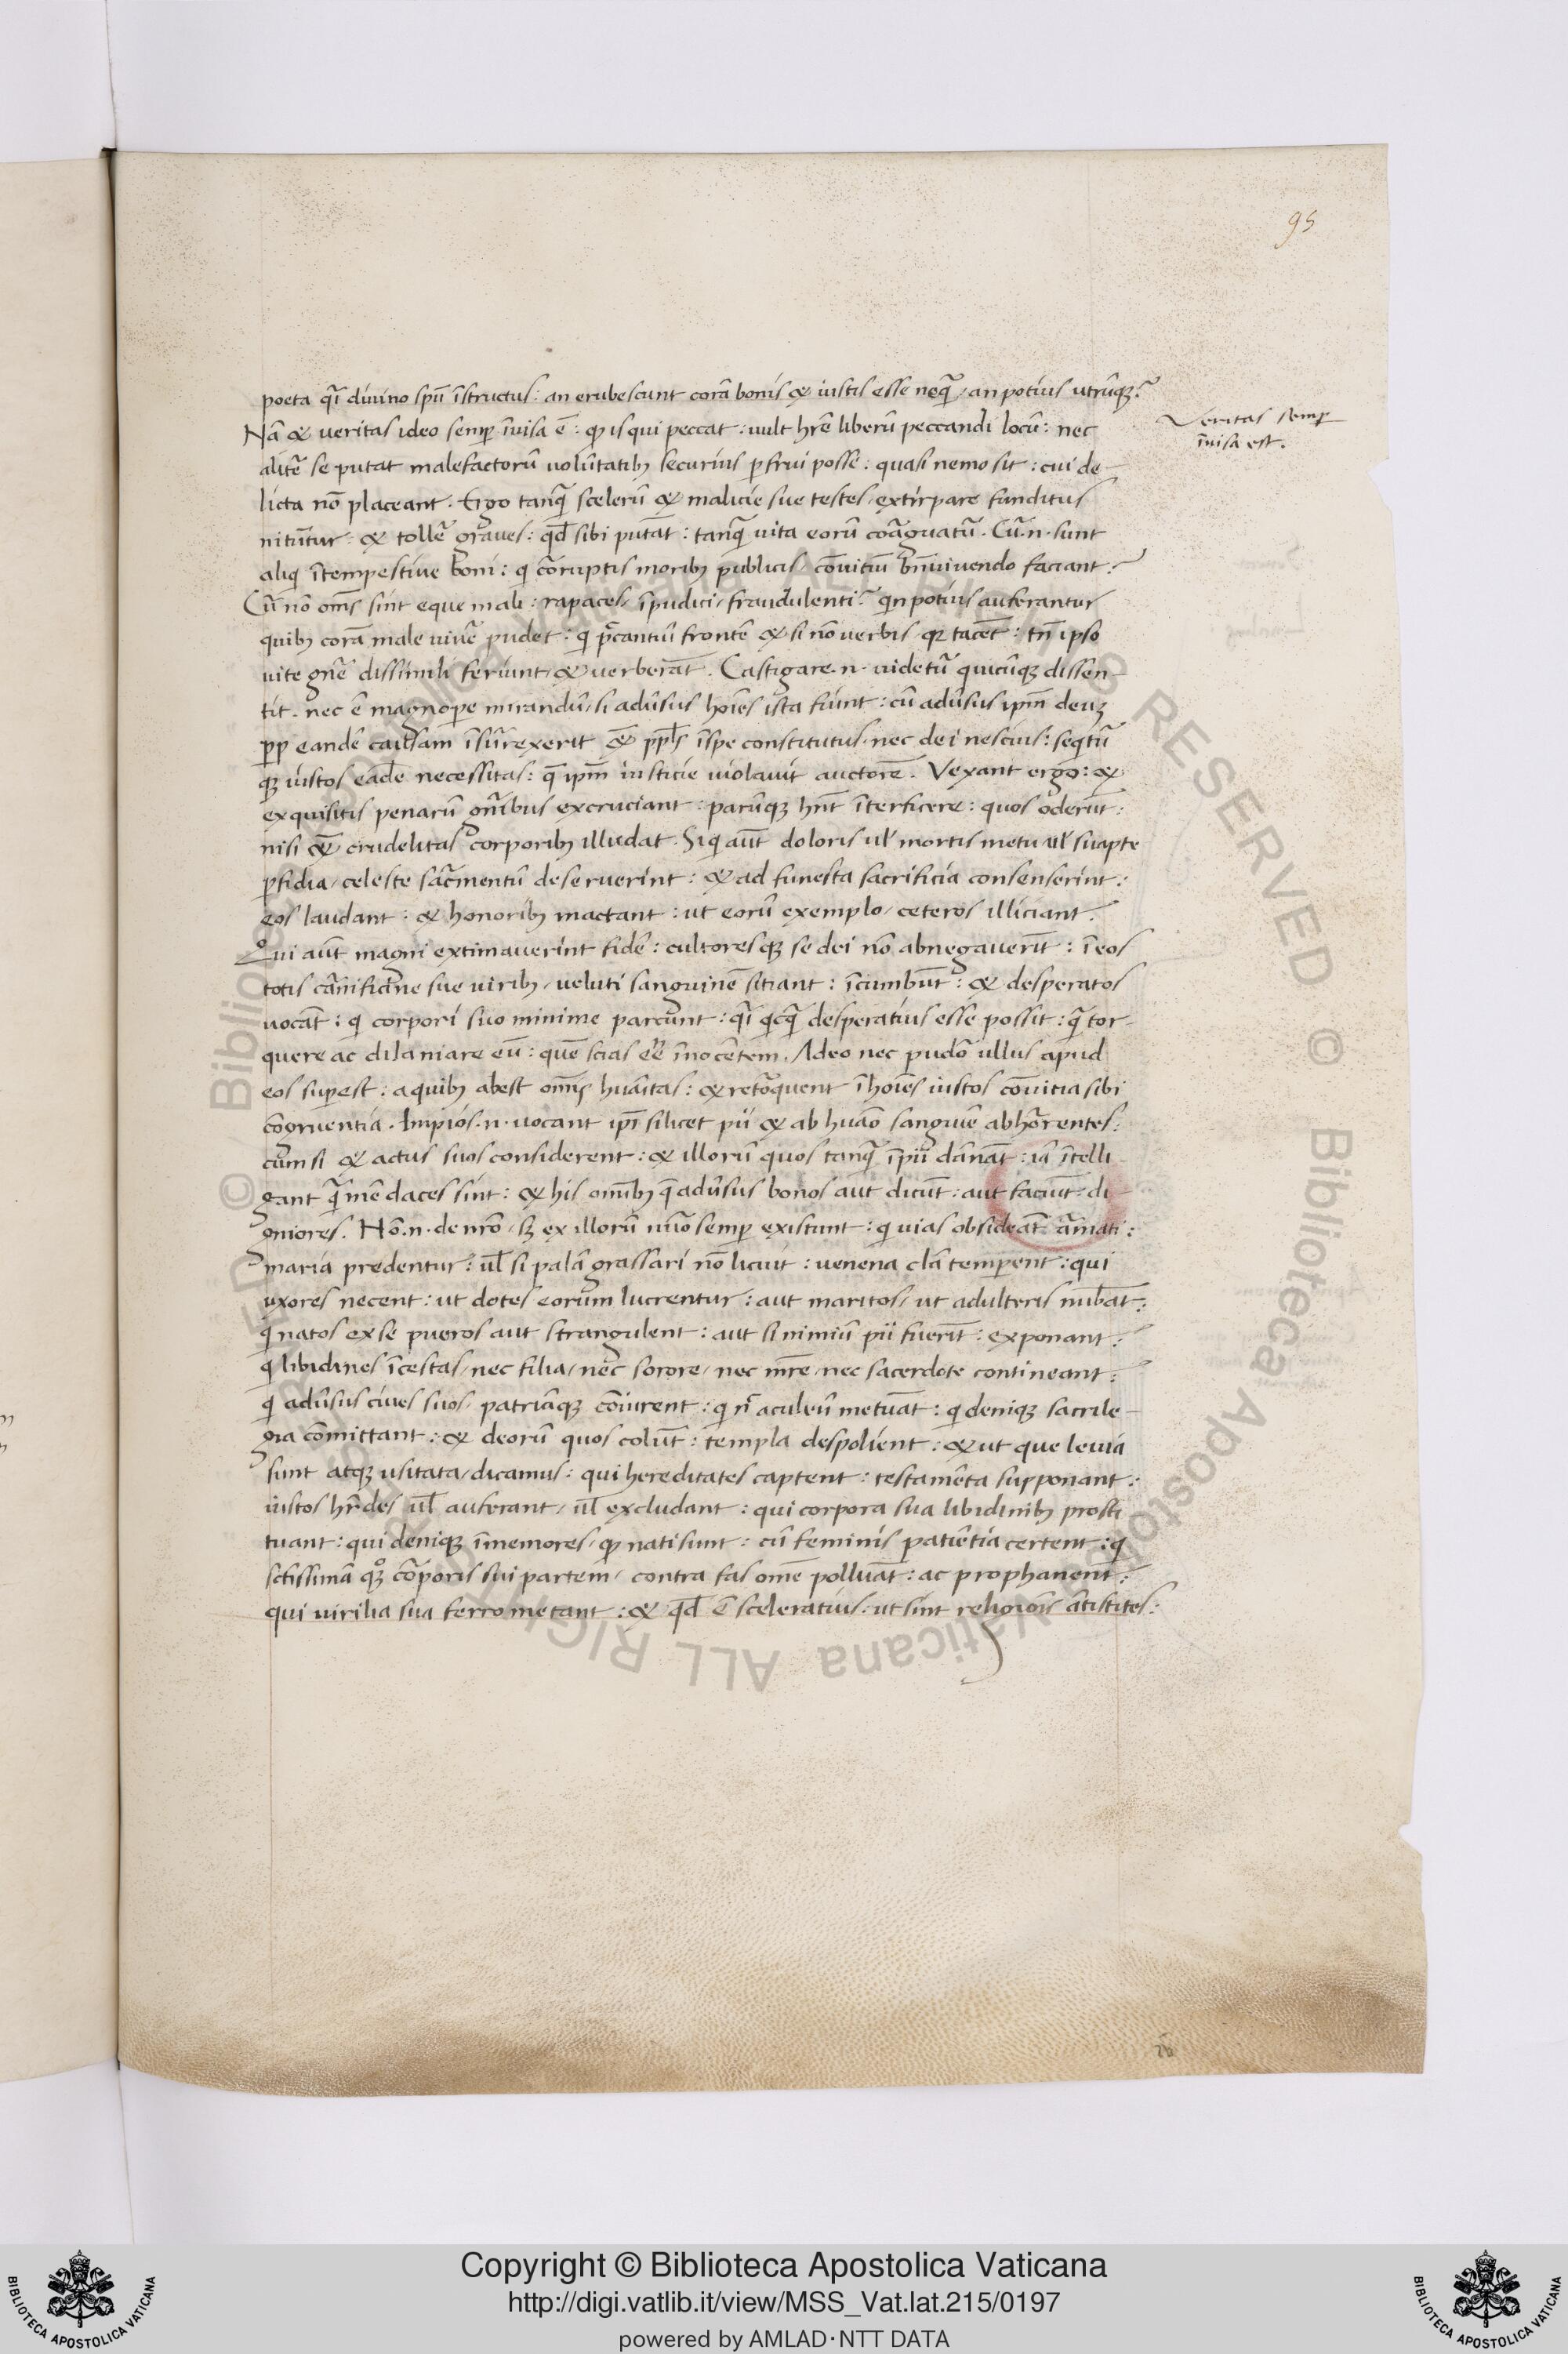 95
poeta q̃i divino spũ ĩstructus: an erubescunt corã bonis & iustis esse neq̃: an potius utrũqꝫ?
Nã & veritas ideo semꝑ ĩvisa ẽ: ꝙ is qui peccat: vult hr̃e liberũ peccandi locũ: nec
Veritas semꝑ
ĩvisa est.
alit̃ se putat malefactorũ volũtatibꝫ securius ꝑfrui posse: quasi nemo sit: cui de-
licta nõ placeant. Ergo tanq̃ scelerũ & malicie sue testes, extirpare funditus
nitũtur: & toll̃e graves: qd̃ sibi putãt: tanq̃ vita eorũ coãguat̃. Cũ.n. sunt
aliq̃ ĩtempestive boni: q̃ c̃oruptis moribꝫ publicis, cõvitiũ bñvivendo faciant?
Cũ nõ om̃s sint eque mali: rapaces, ĩpudici, fraudulenti? q̃n potius auferantur
quibꝫ corã male viv̾e pudet: q̃ p̃cantiũ frontẽ & si nõ verbis qꝛ tacẽt: tñ ipso
vite gñe dissimili feriunt, & verberãt. Castigare.n. videt̃ quicũqꝫ dissen-
tit. nec ẽ magnoꝑe mirandũ, si adũsus hoĩes ista fiunt: cũ adũsus ipm̃ deuꝫ
ꝓp eandẽ causam ĩsũrexerit & ppl̃s ĩspe constitutus, nec dei nescius: seqt̃
qꝫ iustos eadẽ necessitas: q̃ ipm̃ iusticie violavit auctorẽ. Vexant ergo: &
exquisitis penarũ gñibus excruciant: parũqꝫ hñt ĩterficere: quos oderũt:
nisi & crudelitas corporibꝫ illudat. Siq̃ aũt doloris ul̃ mortis metu ul̃ suapte
ꝑfidia, celeste sac̃mentũ deseruerint: & ad funesta sacrificia consenserint:
eos laudant: & honoribꝫ mactant: ut eorũ exemplo, ceteros illiciant.
Qui aũt magni extimaverint fidẽ: cultoresqꝫ se dei nõ abnegaverĩt: ĩ eos
totis c̃anificine sue viribꝫ, veluti sanguinẽ sitiant: ĩcumbũt: & desperatos
vocãt: q̃ corpori suo minime parcunt: q̃i q̃cq̃ desperatius esse possit: q̃ tor-
quere ac dilaniare eũ: quẽ scias ẽe ĩnocẽtem. Adeo nec pudõ ullus apud
eos suꝑest: a quibꝫ abest om̃is huãitas: & ret̃oquent ĩ hoĩes iustos cõvitia sibi
cõgruentia. Impios.n. vocant ipĩ silicet pii & ab huão sanguĩe abh̃orentes:
cum si & actus suos considerent: & illorũ quos tanq̃ ĩpii dãnãt: iã ĩtelli
gant q̃ mẽdaces sint: & his om̃ibꝫ q̃ adũsus bonos aut dicũt: aut faciũt: di-
gniores. Nõ.n. de nr̃o, sꝫ ex illorũ nũo semꝑ existunt: q̃ vias obsideãt ãmati:
maria predentur: ul̃ si palã grassari nõ licuit: venena clã temꝑent: qui
uxores necent: ut dotes eorum lucrentur: aut maritos, ut adulteris nubãt:
q̃ natos ex se pueros aut strangulent: aut si nimiũ pii fuerĩt: exponant:
q̃ libidines ĩcestas, nec filia, nec sorore, nec mr̃e, nec sacerdote contineant:
q̃ adũsus cives suos, patriãqꝫ cõiurent: q̃ nˀ aculeũ metuãt: q̃ deniqꝫ sacrile-
gia cõmittant: & deorũ quos colũt: templa despolient: & ut que levia
sunt atqꝫ usitata, dicamus: qui hereditates captent: testamẽta supponant:
iustos hr̃des ul̃ auferant, ul̃ excludant: qui corpora sua libidinibꝫ prosti
tuant: qui deniqꝫ ĩmemores, ꝙ nati sunt: cũ feminis patiẽtia certent: q̃
sctissimã qꝫ c̃oporis sui partem, contra fas omẽ polluãt: ac prophanent:
qui virilia sua ferro metant: & qd̃ ẽ sceleratius, ut sint religiõis ãtistites:
© Biblioteca Apostolica Vaticana ALL RIGHTS RESERVED
Copyright © Biblioteca Apostolica Vaticana
http://digi.vatlib.it/view/MSS_Vat.lat.215/0197
powered by AMLAD·NTT DATA
BIBLIOTECA APOSTOLICA VATICANA
BIBLIOTECA APOSTOLICA VATICANA